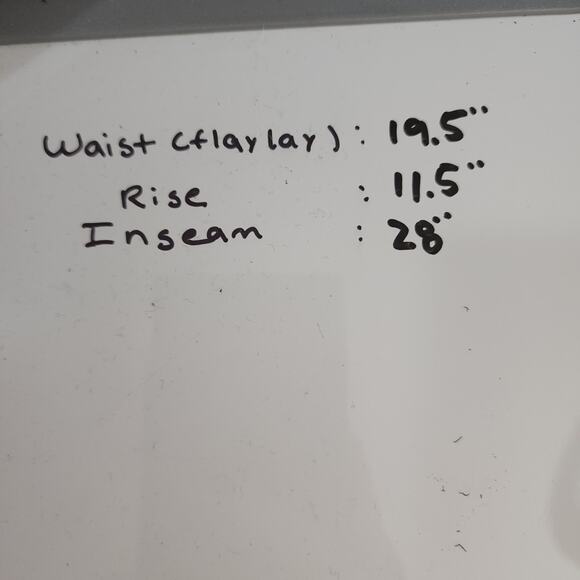 Waist (flaylay): 19.5"
Rise : 11.5"
Inseam : 28"